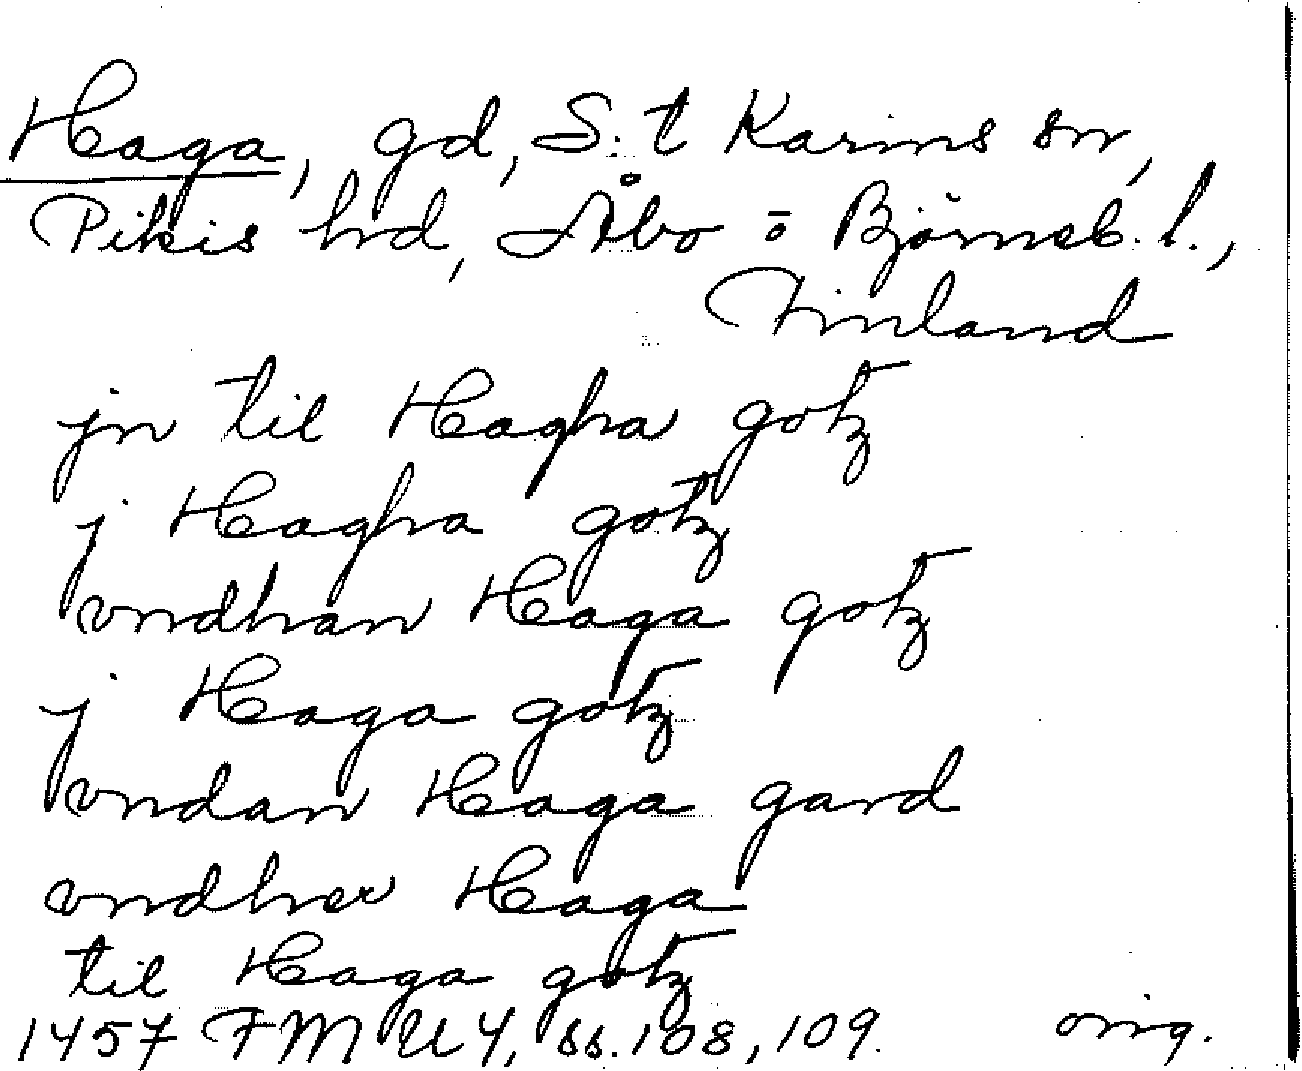 Haga, gd, S:t Karins sn,
Pikis hrd, Åbo o Björneb. l.,
Finland
jn til Hagha gotz
j Hagha gotz
vndhan Haga gotz
j Haga gotz
vndan Haga gard
vndher Haga
til Haga gotz
1457 FMU 4, ss. 108, 109. orig.